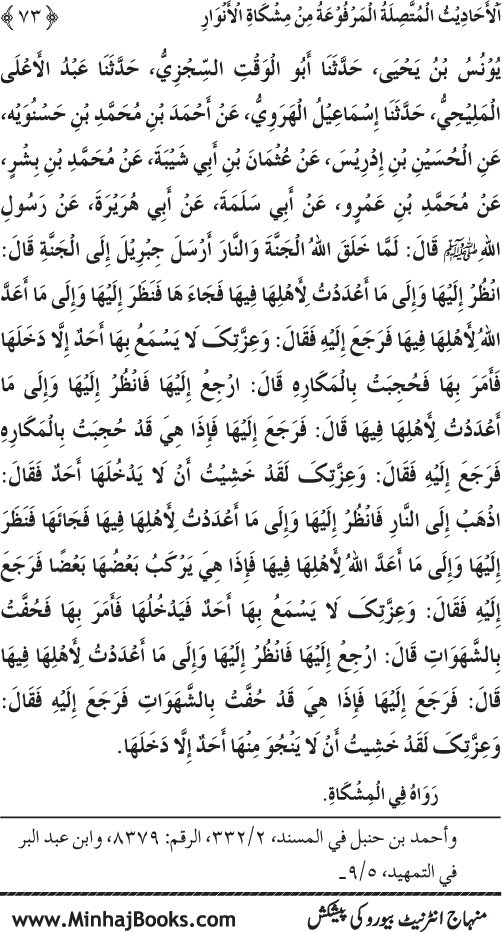 اَلْأَحَادِيْثُ الْمُتَّصِلَةُ الْمَرْفُوْعَةُ مِنْ مِشْكَاةِ الْأَنْوَارِ ﴿٧٣﴾
يُوْنُسُ بْنُ يَحْيَى، حَدَّثَنَا أَبُو الْوَقْتِ السِّجْزِيُّ، حَدَّثَنَا عَبْدُ الْأَعْلَى
الْمَلِيْحِيُّ، حَدَّثَنَا إِسْمَاعِيْلُ الْهَرَوِيُّ، عَنْ أَحْمَدَ بْنِ مُحَمَّدِ بْنِ حَسْنُوَيْهِ،
عَنِ الْحُسَيْنِ بْنِ إِدْرِيْسَ، عَنْ عُثْمَانَ بْنِ أَبِي شَيْبَةَ، عَنْ مُحَمَّدِ بْنِ بِشْرٍ،
عَنْ مُحَمَّدِ بْنِ عَمْرٍو، عَنْ أَبِي سَلَمَةَ، عَنْ أَبِي هُرَيْرَةَ، عَنْ رَسُوْلِ
اللهِ ﷺ قَالَ: لَمَّا خَلَقَ اللهُ الْجَنَّةَ وَالنَّارَ أَرْسَلَ جِبْرِيْلَ إِلَى الْجَنَّةِ قَالَ:
انْظُرْ إِلَيْهَا وَإِلَى مَا أَعْدَدْتُ لِأَهْلِهَا فِيهَا فَجَاءَ هَا فَنَظَرَ إِلَيْهَا وَإِلَى مَا أَعَدَّ
اللهُ لِأَهْلِهَا فِيهَا فَرَجَعَ إِلَيْهِ فَقَالَ: وَعِزَّتِكَ لَا يَسْمَعُ بِهَا أَحَدٌ إِلَّا دَخَلَهَا
فَأَمَرَ بِهَا فَحُجِبَتْ بِالْمَكَارِهِ قَالَ: ارْجِعْ إِلَيْهَا فَانْظُرْ إِلَيْهَا وَإِلَى مَا
أَعْدَدْتُ لِأَهْلِهَا فِيهَا قَالَ: فَرَجَعَ إِلَيْهَا فَإِذَا هِيَ قَدْ حُجِبَتْ بِالْمَكَارِهِ
فَرَجَعَ إِلَيْهِ فَقَالَ: وَعِزَّتِكَ لَقَدْ خَشِيْتُ أَنْ لَا يَدْخُلَهَا أَحَدٌ فَقَالَ:
اذْهَبْ إِلَى النَّارِ فَانْظُرْ إِلَيْهَا وَإِلَى مَا أَعْدَدْتُ لِأَهْلِهَا فِيهَا فَجَائَهَا فَنَظَرَ
إِلَيْهَا وَإِلَى مَا أَعَدَّ اللهُ لِأَهْلِهَا فِيهَا فَإِذَا هِيَ يَرْكَبُ بَعْضُهَا بَعْضًا فَرَجَعَ
إِلَيْهِ فَقَالَ: وَعِزَّتِكَ لَا يَسْمَعُ بِهَا أَحَدٌ فَيَدْخُلُهَا فَأَمَرَ بِهَا فَحُفَّتْ
بِالشَّهَوَاتِ قَالَ: ارْجِعْ إِلَيْهَا فَانْظُرْ إِلَيْهَا وَإِلَى مَا أَعْدَدْتُ لِأَهْلِهَا فِيهَا
قَالَ: فَرَجَعَ إِلَيْهَا فَإِذَا هِيَ قَدْ حُفَّتْ بِالشَّهَوَاتِ فَرَجَعَ إِلَيْهِ فَقَالَ:
وَعِزَّتِكَ لَقَدْ خَشِيْتُ أَنْ لَا يَنْجُوَ مِنْهَا أَحَدٌ إِلَّا دَخَلَهَا.
رَوَاهُ فِي الْمِشْكَاةِ.
وأحمد بن حنبل في المسند، ٣٣٢/٢، الرقم: ٨٣٧٩، وابن عبد البر
في التمهيد، ٩/٥۔
منہاج انٹرنیٹ بیورو کی پیشکش www.MinhajBooks.com